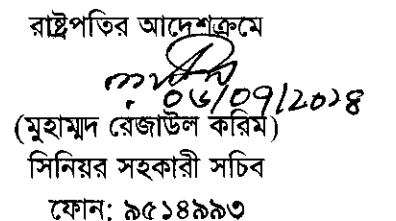 রাষ্ট্রপতির আদেশক্রমে
০৬/০৭/২০১৪
(মুহাম্মদ রেজাউল করিম)
সিনিয়র সহকারী সচিব
ফোন: ৯৫১৪৯৯৩